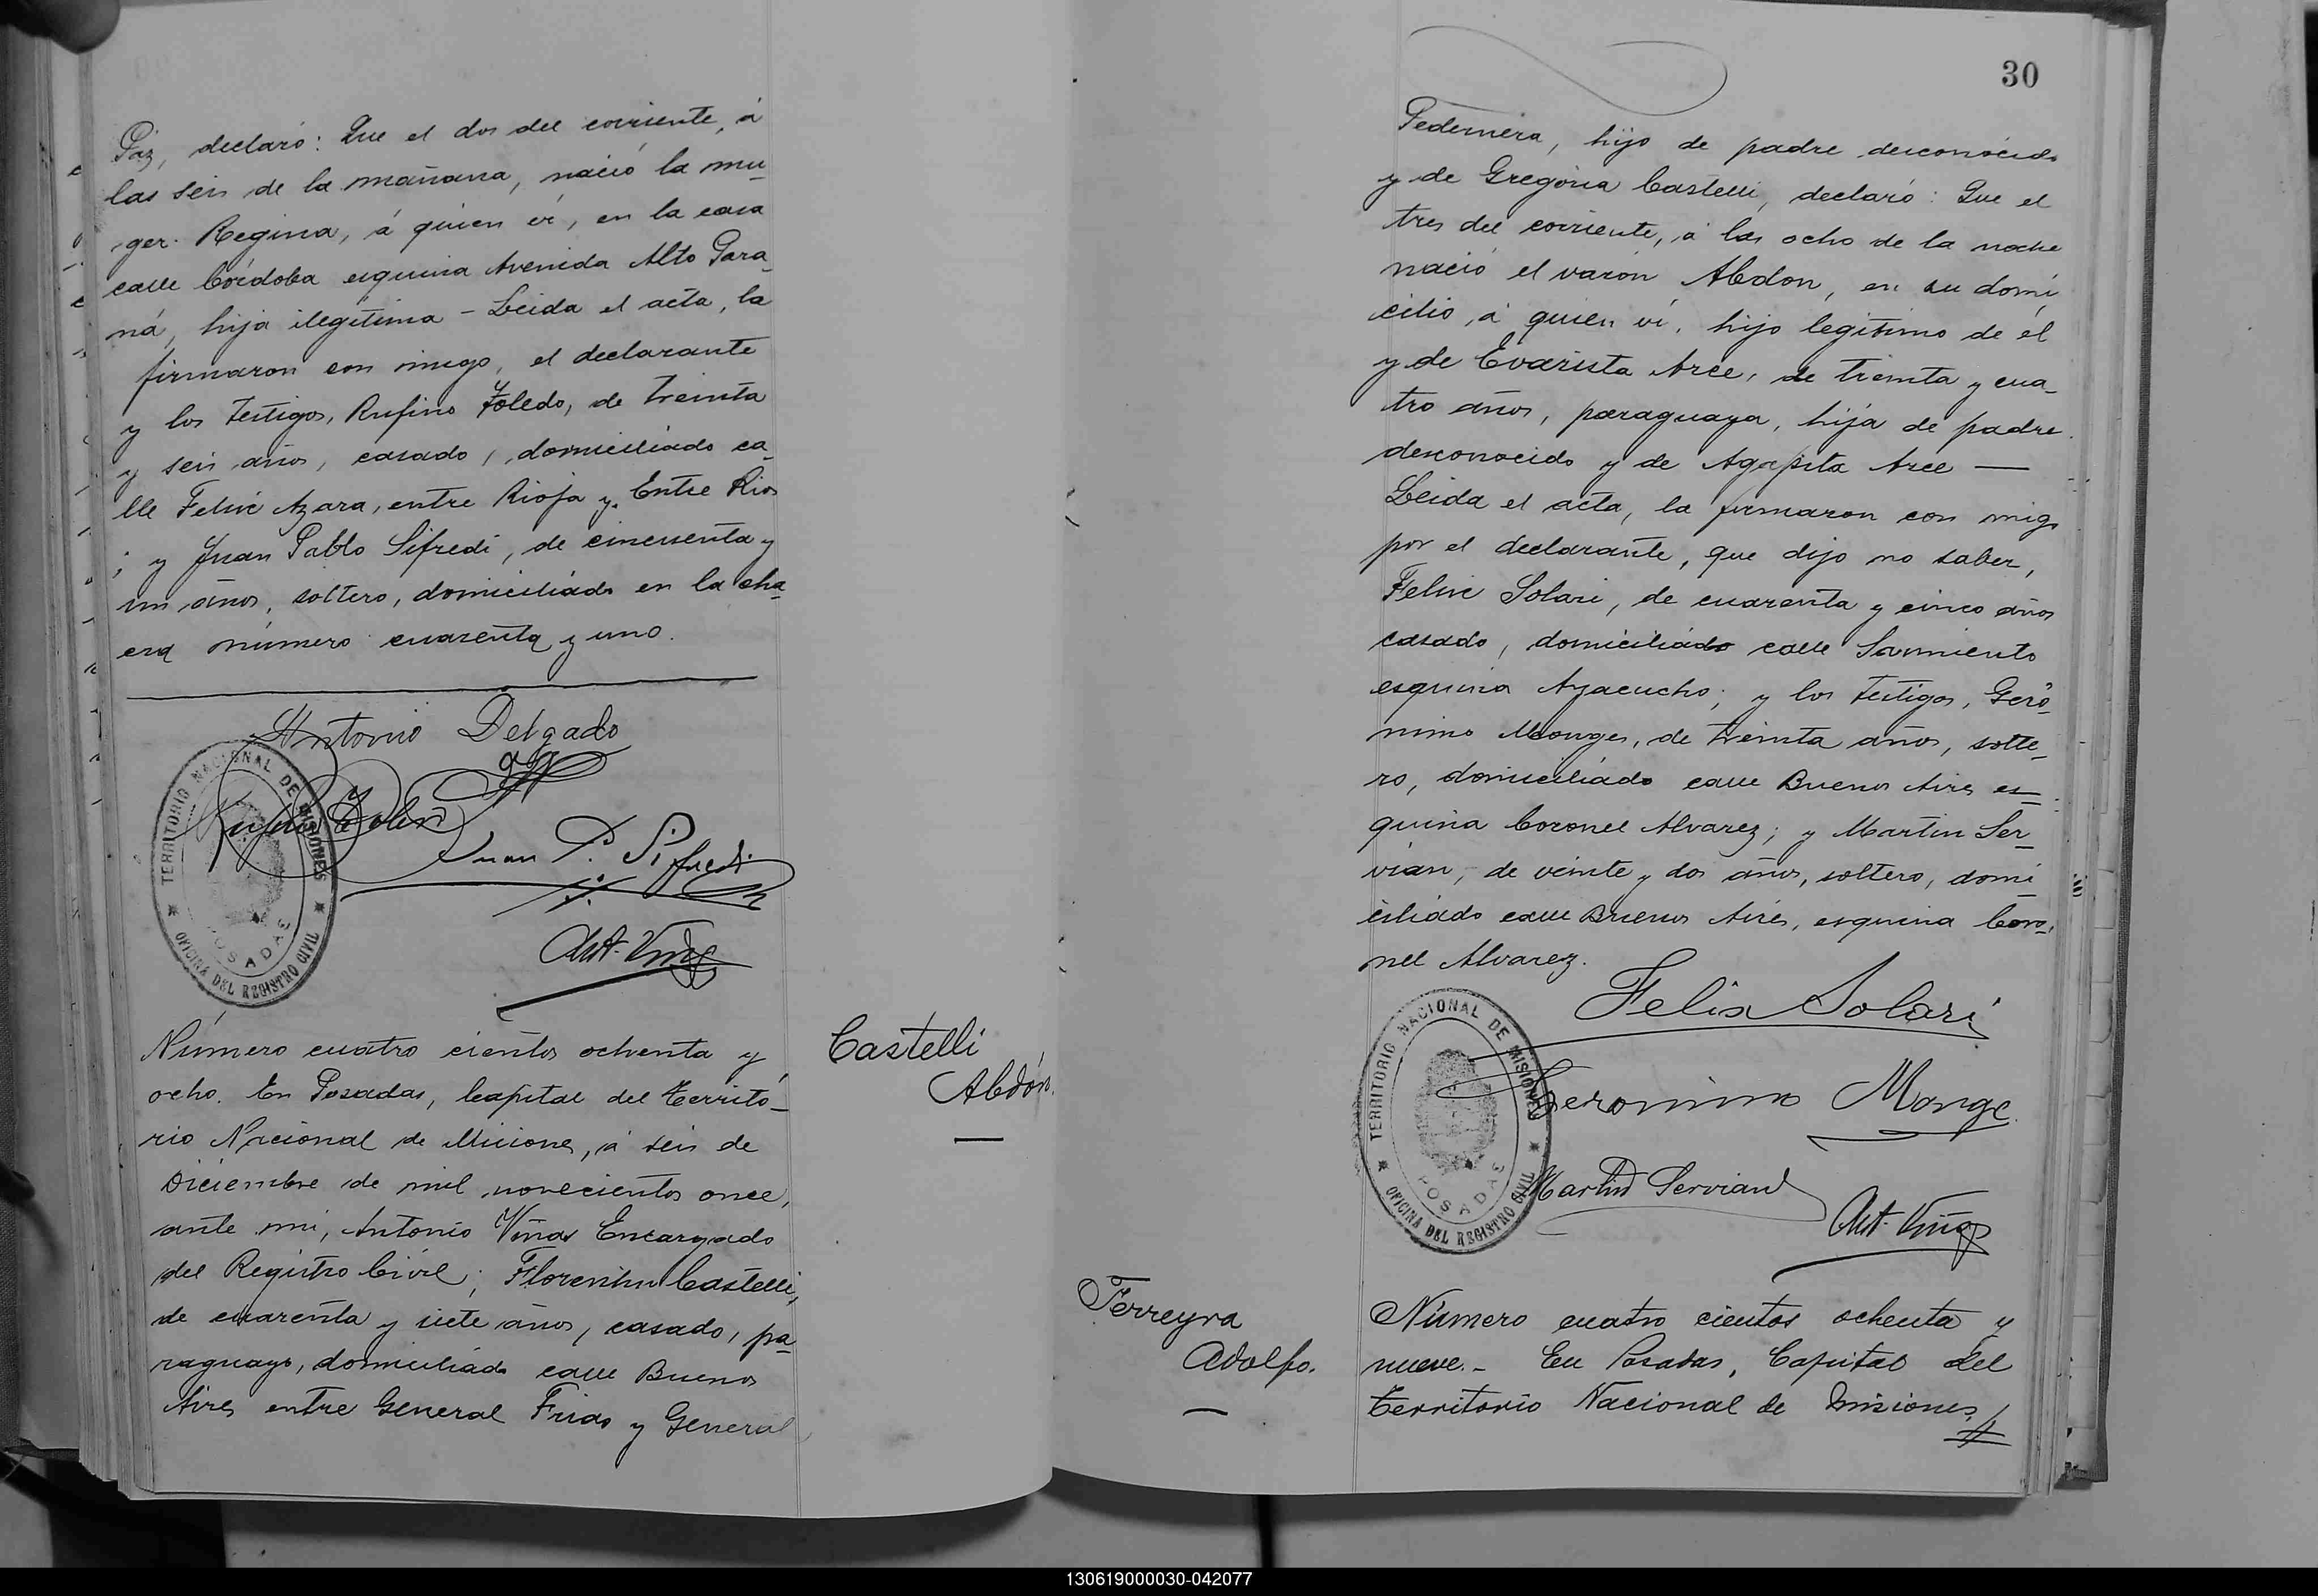 Paz, declaró: Que el dos del corriente, á
las seis de la mañana, nació la mu-
ger Regina, á quien ví, en la casa
calle Córdoba esquina Avenida Alto Para-
ná, hija ilegítima - Leida el acta, la
firmaron con migo, el declarante
y los testigos, Rufino Y Toledo, de treinta
y seis años, casado, domiciliado ca-
lle Felix Azara, entre Rioja y Entre Rios
; y Juan Pablo Sifredi, de cincuenta y
un años, soltero, domiciliado en la cha-
cra número cuarenta y uno.
Antonio Delgado
Rufino Y Toledo
Juan P. Sifredi
Ant. Viñas
TERRITORIO NACIONAL DE MISIONES
POSADAS
OFICINA DEL REGISTRO CIVIL
Castelli
Abdón.
Número cuatro cientos ochenta y
ocho. En Posadas, Capital del Territó-
rio Nacional de Misiones, á seis de
Diciembre de mil novecientos once,
ante mi, Antonio Viñas Encargado
del Registro Civil; Florentin Castelli,
de cuarenta y siete años, casado, pa-
raguayo, domiciliado calle Buenos
Aires entre General Frias y General
30
Pedernera, hijo de padre desconocido
y de Gregoria Castelli, declaró: Que el
tres del corriente, á las ocho de la noche
nació el varón Abdon, en su domi
cilio, á quien ví, hijo legítimo de él
y de Evarista Arce, de treinta y cua-
tro años, paraguaya, hija de padre
desconocido y de Agapita Arce —
Leida el acta, la firmaron con migo
por el declarante, que dijo no saber,
Felix Solari, de cuarenta y cinco años
casado, domiciliado calle Sarmiento
esquina Ayacucho; y los testigos, Geró-
nimo Monges, de treinta años, solte-
ro, domiciliado calle Buenos Aires es-
quina Coronel Alvarez; y Martin Ser-
vian, de veinte y dos años, soltero, domi
ciliado calle Buenos Aires, esquina Coro-
nel Alvarez.
Felix Solari
Geronimo Monge
Martin Servian
Ant. Viñas
TERRITORIO NACIONAL DE MISIONES
POSADAS
OFICINA DEL REGISTRO CIVIL
Ferreyra
Adolfo.
Número cuatro cientos ochenta y
nueve. - En Posadas, Capital del
Territorio Nacional de Misiones,
130619000030-042077